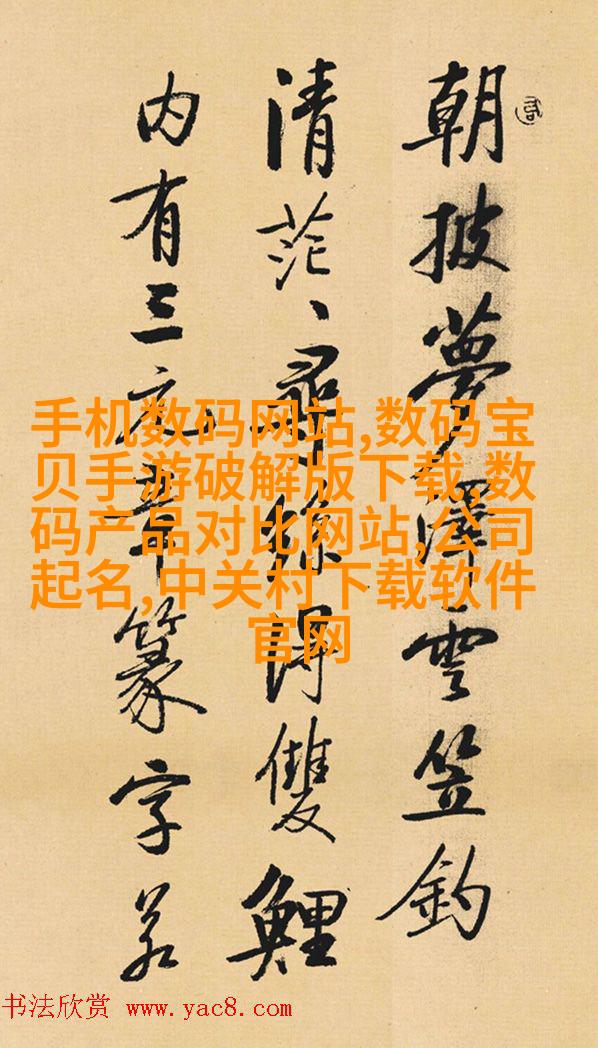 朝披夢澤雲笠釣
清茫、尋絲得雙鯉
内有三元章篆字若
手机数码网站,数码宝
贝手游破解版下载,数
码产品对比网站,公司
起名,中关村下载软件
官网
书法欣赏 www.yac8.com